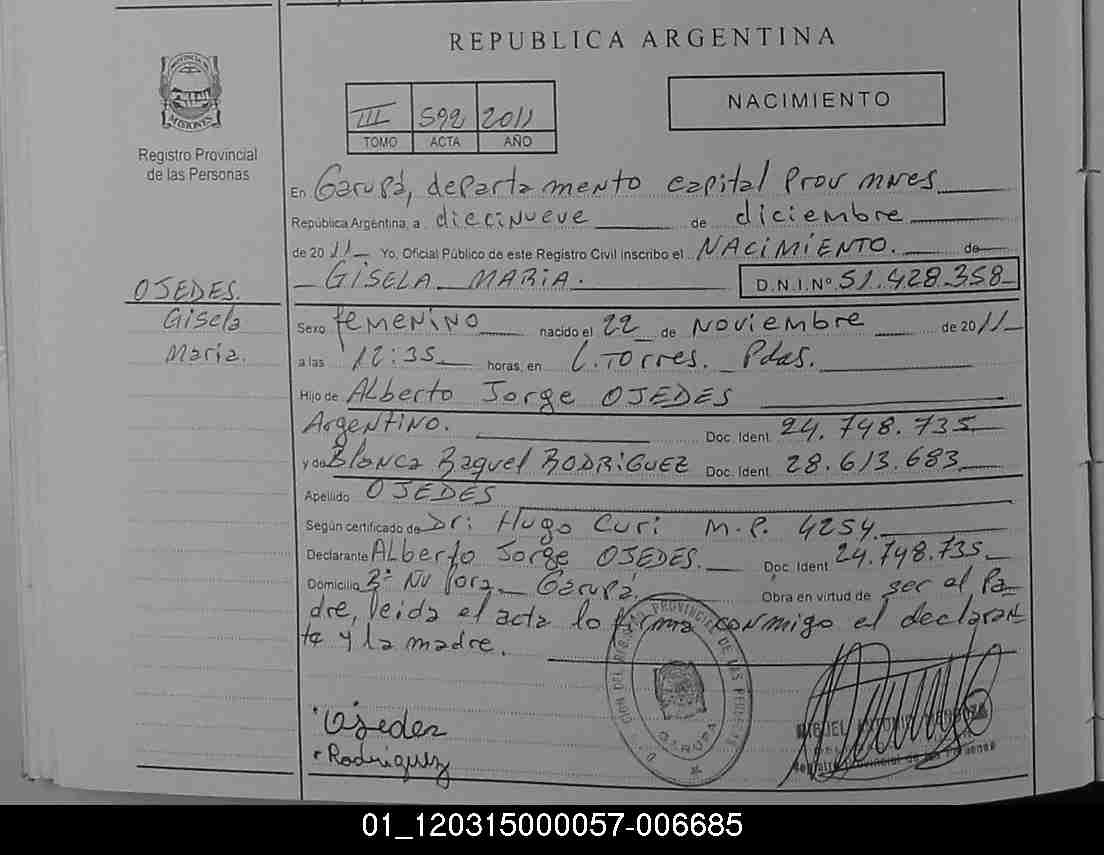 REPUBLICA ARGENTINA
PROVINCIA DE
MISIONES
Registro Provincial
de las Personas
III 592 2011
TOMO ACTA AÑO
NACIMIENTO
En Garupá, departamento capital Prov mnes
República Argentina, a diecinueve de diciembre
de 2011 Yo, Oficial Público de este Registro Civil inscribo el NACIMIENTO. de
GISELA MARIA. D.N.I.Nº 51.428.358
OJEDES.
Gisela
Maria.
Sexo femenino nacido el 22 de Noviembre de 2011
a las 12:35 horas, en C. Torres. Pdas.
Hijo de Alberto Jorge OJEDES
Argentino. Doc. Ident. 24.748.735
y de Blanca Raquel RODRIGUEZ Doc. Ident. 28.613.683
Apellido OJEDES
Según certificado de Dr: Hugo Curi M.P. 4254
Declarante Alberto Jorge OJEDES. Doc. Ident 24.748.735
Domicilio Bº Nu Pora Garupá. Obra en virtud de ser el Pa-
dre, leida el acta lo firma conmigo el declaran-
te y la madre.
Ojedes
Rodriguez
PROVINCIAL DE LAS PERSONAS
GARUPA
MIGUEL ANTONIO MENDOZA
Registro Provincial de las Personas
01_120315000057-006685